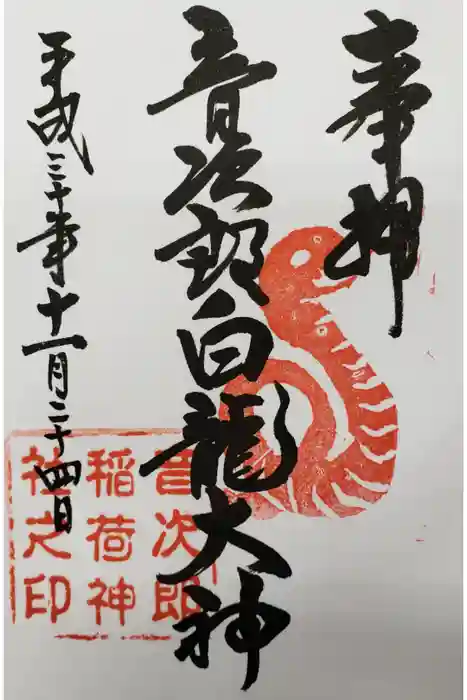 奉押
音次郎白龍大神
平成三十年十一月二十四日
音次郎
稲荷神
社之印